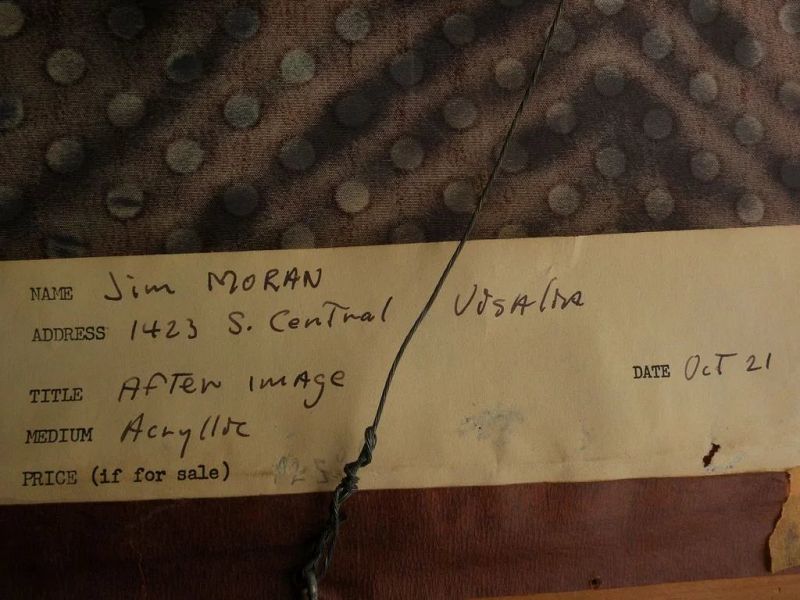 NAME Jim MORAN
ADDRESS 1423 S. Central Visalia
TITLE After image
DATE Oct 21
MEDIUM Acryllic
PRICE (if for sale)